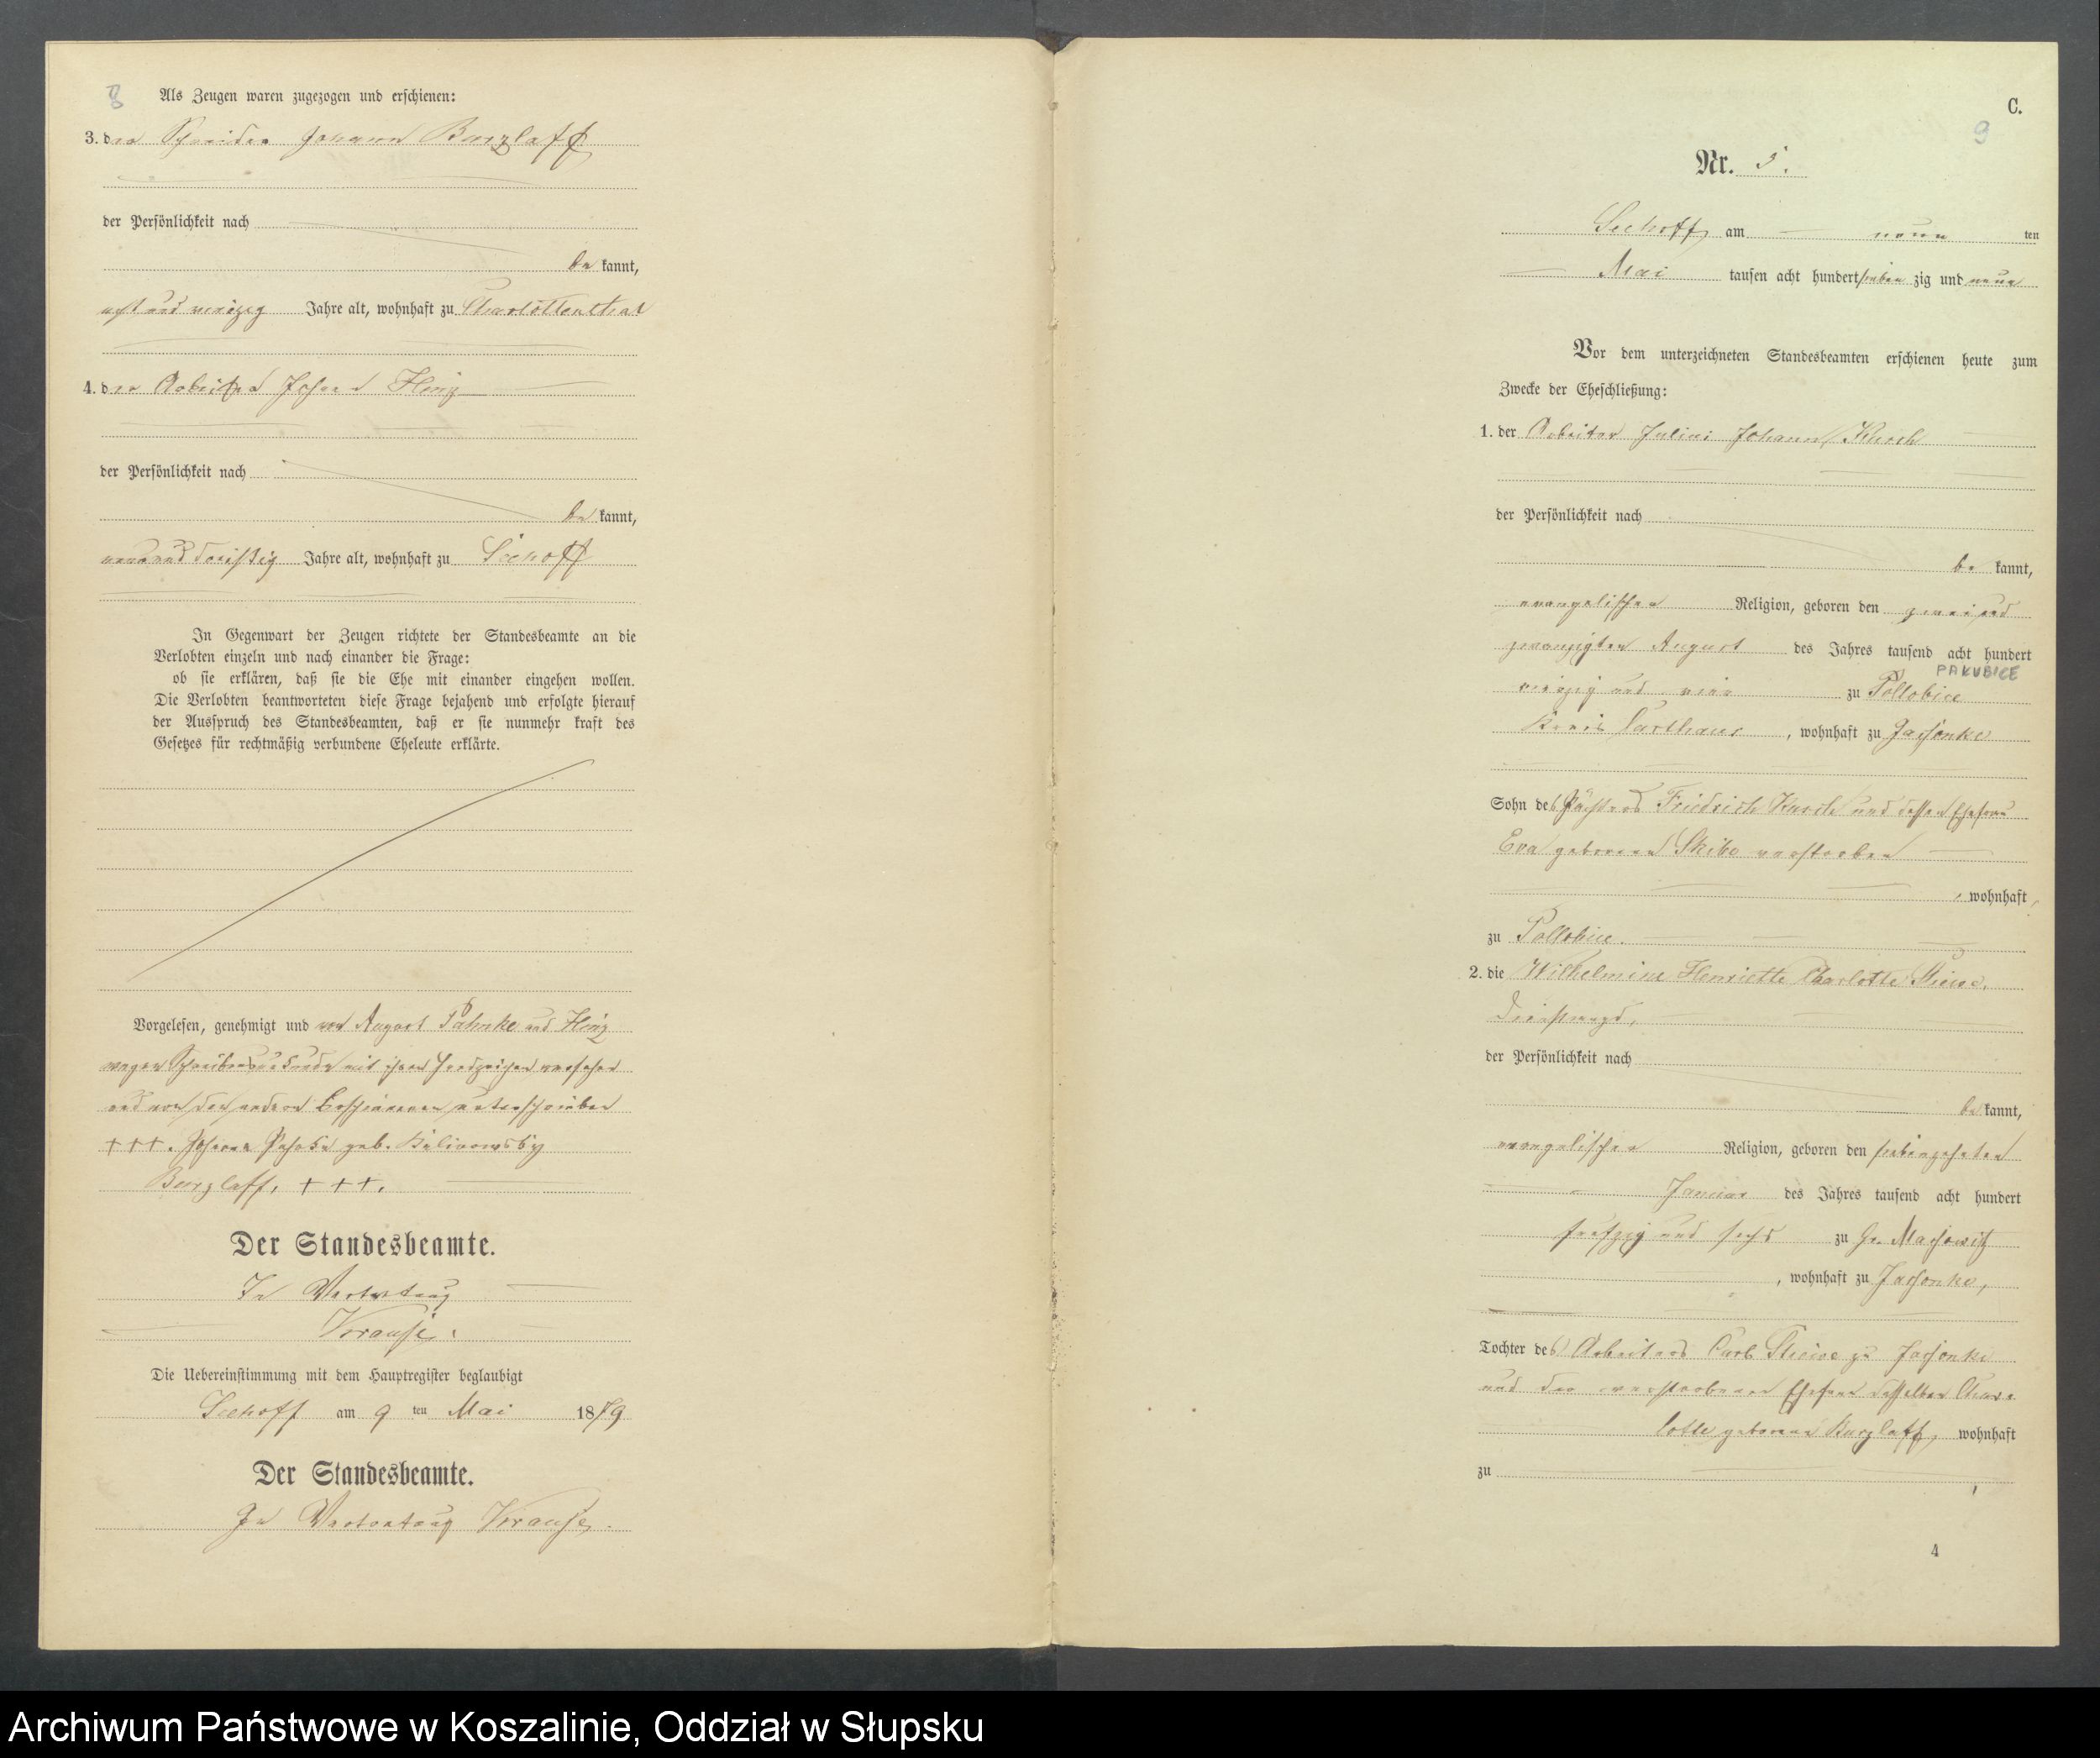 8
Als Zeugen waren zugezogen und erschienen:
3. der Schneider Johann Burzlaff
der Persönlichkeit nach
be kannt,
acht und vierzig Jahre alt, wohnhaft zu Charlottenthal
4. der Arbeiter Johann Heinz
der Persönlichkeit nach
be kannt,
neununddreißig Jahre alt, wohnhaft zu Seehoff
In Gegenwart der Zeugen richtete der Standesbeamte an die
Verlobten einzeln und nach einander die Frage:
ob sie erklären, daß sie die Ehe mit einander eingehen wollen.
Die Verlobten beantworteten diese Frage bejahend und erfolgte hierauf
der Ausspruch des Standesbeamten, daß er sie nunmehr kraft des
Gesetzes für rechtmäßig verbundene Eheleute erklärte.
Vorgelesen, genehmigt und von August Pahnke und Heinz
wegen Schreibensunkunde mit ihren Handzeichen versehen
und von den andern Erschienenen unterschrieben
+++. Johanna Pahnke geb.
Burzlaff. +++.
Der Standesbeamte.
In Vertretung
Krause.
Die Uebereinstimmung mit dem Hauptregister beglaubigt
Seehoff am 9 ten Mai 1879
Der Standesbeamte.
In Vertretung Krause.
C.
9
Nr. 5.
Seehoff am neun ten
Mai tausen acht hundert sieben zig und neun
Vor dem unterzeichneten Standesbeamten erschienen heute zum
Zwecke der Eheschließung:
1. der Arbeiter Julius Johann Kusch
der Persönlichkeit nach
be kannt,
evangelischen Religion, geboren den zwei und
zwanzigten August des Jahres tausend acht hundert
PAKUBICE
vierzig und vier zu Pollobice
Kreis Carthaus, wohnhaft zu Jassonke
Sohn des Pächters Friedrich Kusch und dessen Ehefrau
Eva geborenen Skibo verstorben
, wohnhaft
zu Pollobice.
2. die Wilhelmine Henriette Charlotte Stiewe,
Dienstmagd,
der Persönlichkeit nach
be kannt,
evangelischen Religion, geboren den siebenzehnten
Januar des Jahres tausend acht hundert
fünfzig und sechs zu Gr. Machowitz
, wohnhaft zu Jassonke,
Tochter des Arbeiters Carl Stiewe zu Jassonke
und der verstorbenen Ehefrau desselben Char-
lotte geborene Burzlaff, wohnhaft
zu
4
Archiwum Państwowe w Koszalinie, Oddział w Słupsku